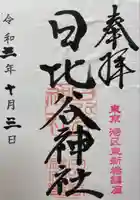 奉拝
東京港区東新橋鎮座
日比谷神社
令和三年十月三日